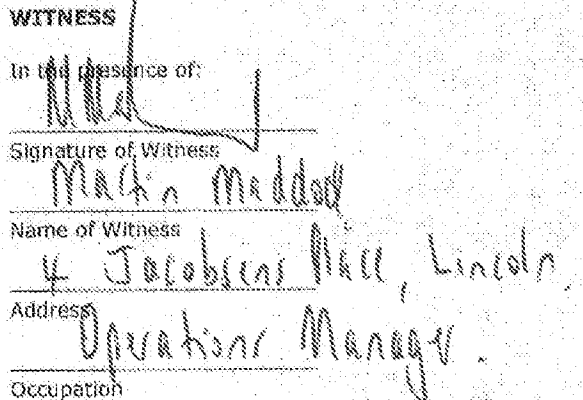 WITNESS
In the presence of:
Signature of Witness
Martin Maddock
Name of Witness
4 Jacobsens Place, Lincoln.
Address
Operations Manager.
Occupation